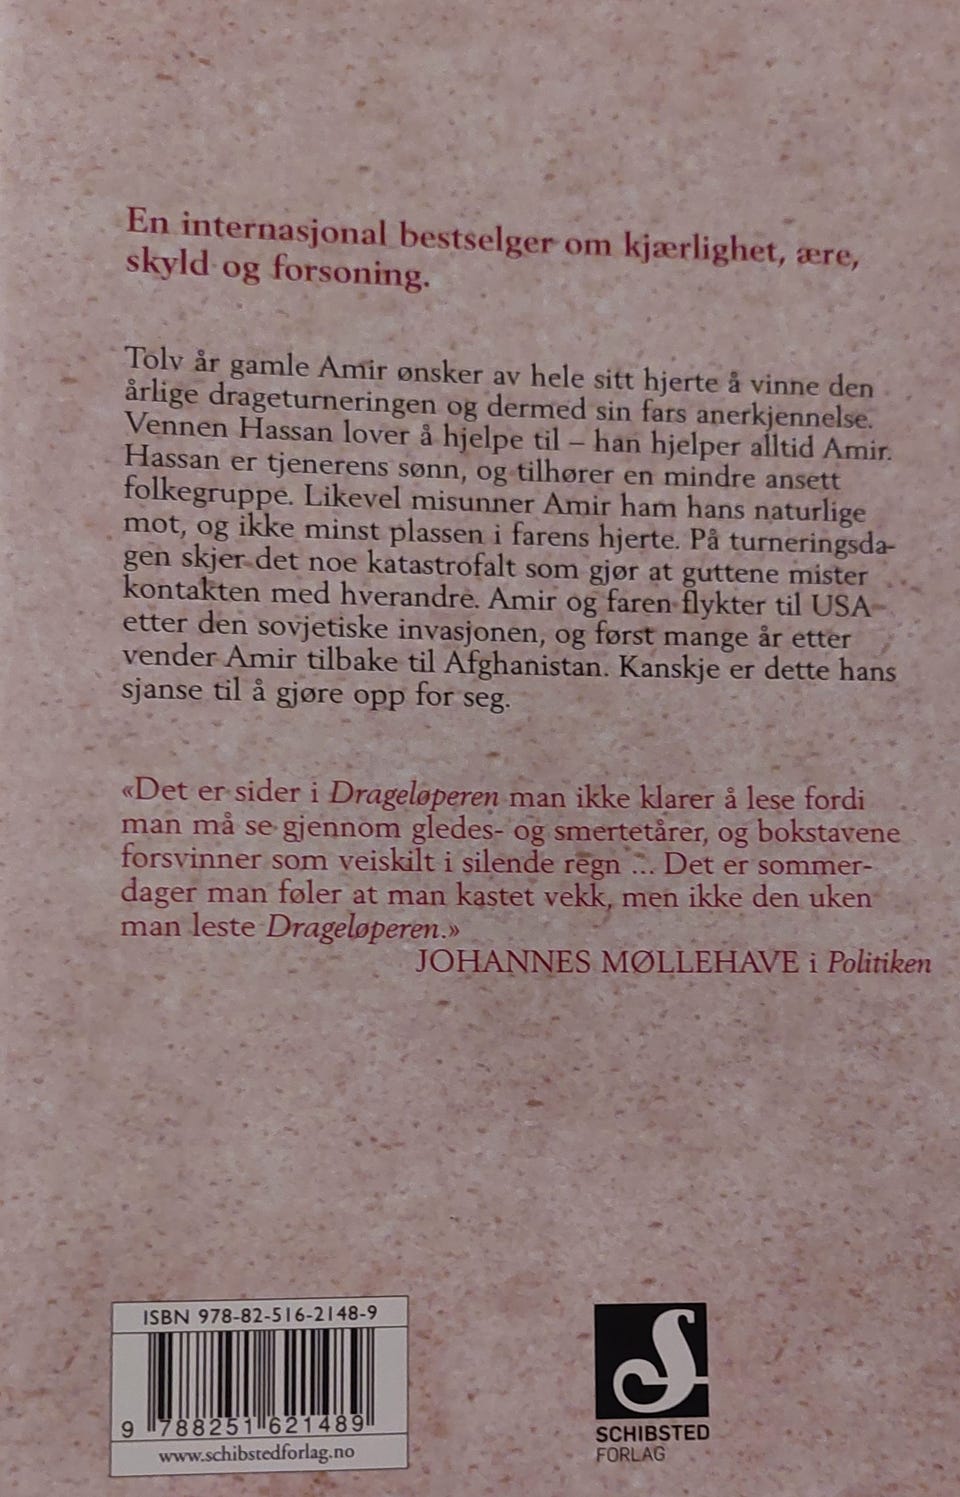 En internasjonal bestselger om kjærlighet, ære,
skyld og forsoning.
Tolv år gamle Amir ønsker av hele sitt hjerte å vinne den
årlige drageturneringen og dermed sin fars anerkjennelse.
Vennen Hassan lover å hjelpe til – han hjelper alltid Amir.
Hassan er tjenerens sønn, og tilhører en mindre ansett
folkegruppe. Likevel misunner Amir ham hans naturlige
mot, og ikke minst plassen i farens hjerte. På turneringsda-
gen skjer det noe katastrofalt som gjør at guttene mister
kontakten med hverandre. Amir og faren flykter til USA
etter den sovjetiske invasjonen, og først mange år etter
vender Amir tilbake til Afghanistan. Kanskje er dette hans
sjanse til å gjøre opp for seg.
«Det er sider i Drageløperen man ikke klarer å lese fordi
man må se gjennom gledes- og smertetårer, og bokstavene
forsvinner som veiskilt i silende regn ... Det er sommer-
dager man føler at man kastet vekk, men ikke den uken
man leste Drageløperen.»
JOHANNES MØLLEHAVE i Politiken
ISBN 978-82-516-2148-9
9 788251 621489
www.schibstedforlag.no
SCHIBSTED
FORLAG